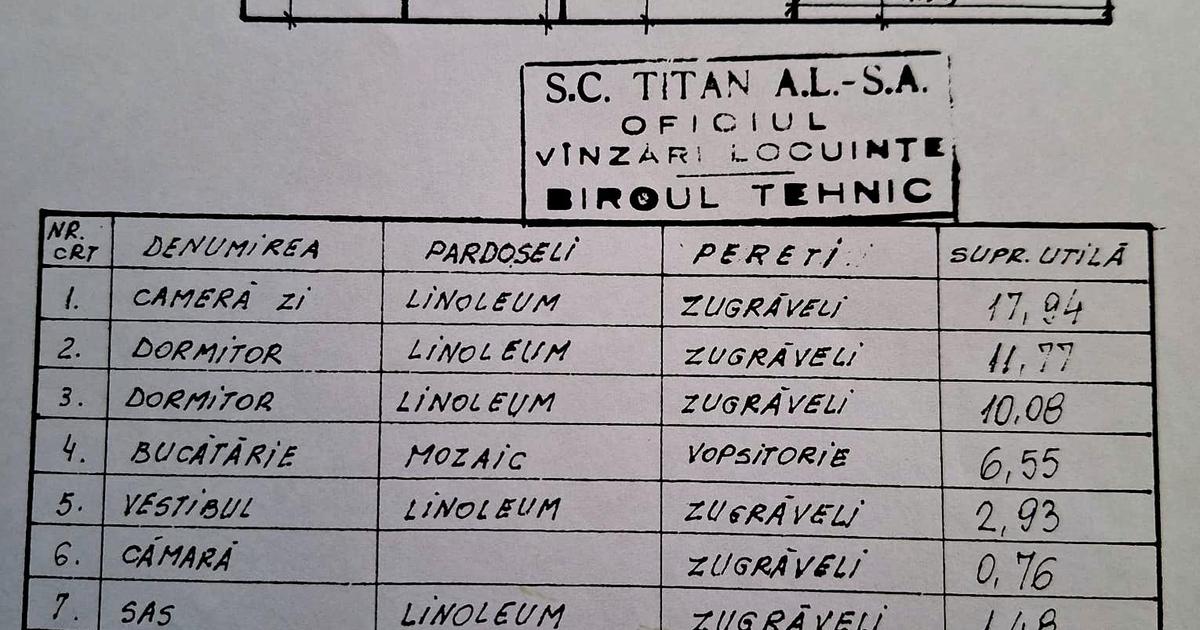 S.C. TITAN A.L.-S.A.
OFICIUL
VÎNZĂRI LOCUINȚE
BIROUL TEHNIC
NR. CRT DENUMIREA PARDOSELI PEREȚI SUPR. UTILĂ
1. CAMERĂ ZI LINOLEUM ZUGRĂVELI 17,94
2. DORMITOR LINOLEUM ZUGRĂVELI 11,77
3. DORMITOR LINOLEUM ZUGRĂVELI 10,08
4. BUCĂTĂRIE MOZAIC VOPSITORIE 6,55
5. VESTIBUL LINOLEUM ZUGRĂVELI 2,93
6. CĂMARĂ ZUGRĂVELI 0,76
7. SAS LINOLEUM ZUGRĂVELI 1,48